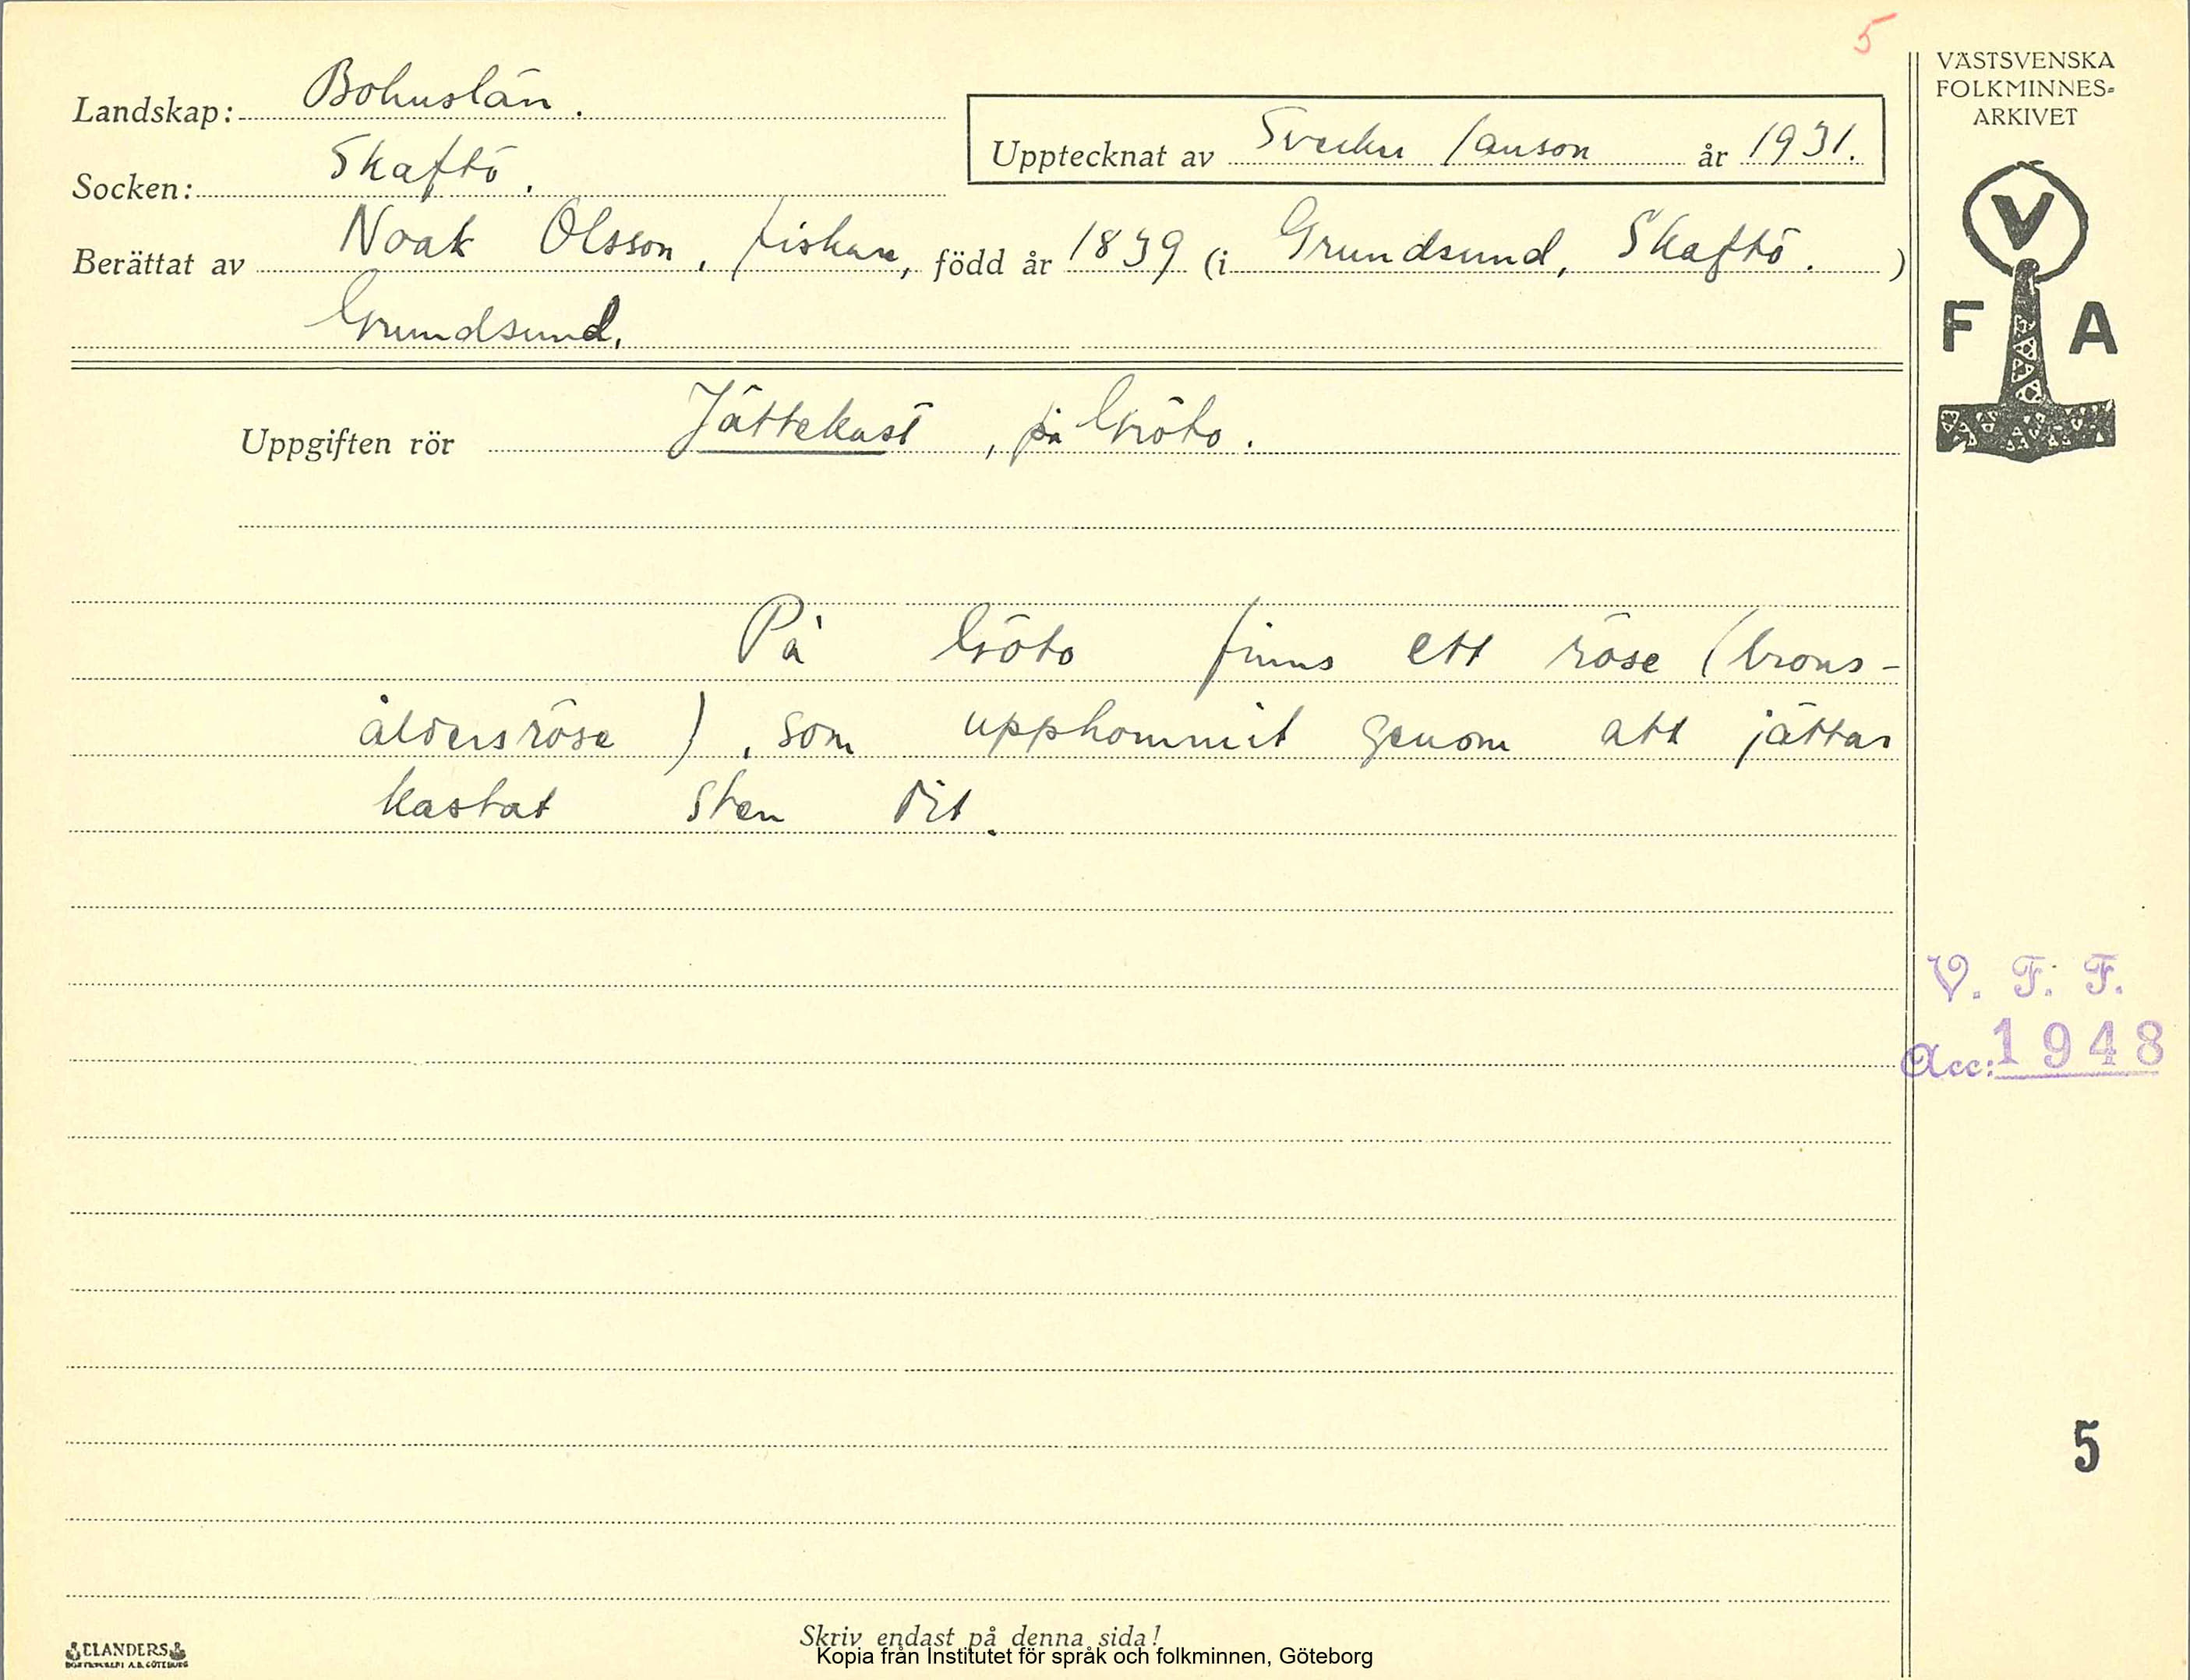 5
VÄSTSVENSKA
FOLKMINNES-
ARKIVET
Landskap: Bohuslän.
Upptecknat av Sverker Janson år 1931.
Socken: Skaftö.
Berättat av Noak Olsson, fiskare, född år 1839 (i Grundsund, Skaftö. )
Grundsund.
V
F A
Uppgiften rör Jättekast, på Gröto.
På Gröto finns ett röse (brons-
åldersröse), som uppkommit genom att jättar
kastat sten dit.
V. F. F.
Acc: 1948
5
Skriv endast på denna sida!
ELANDERS
BOKTRYCKERI A.B. GÖTEBORG
Kopia från Institutet för språk och folkminnen, Göteborg